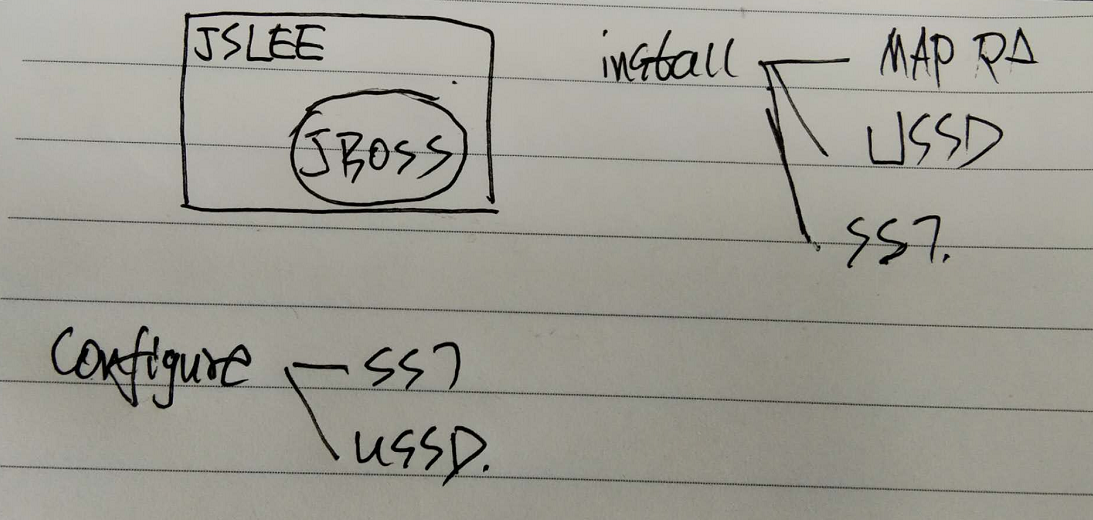 JSLEE
JBOSS
install
MAP RA
USSD
SS7.
Configure
SS7
USSD.